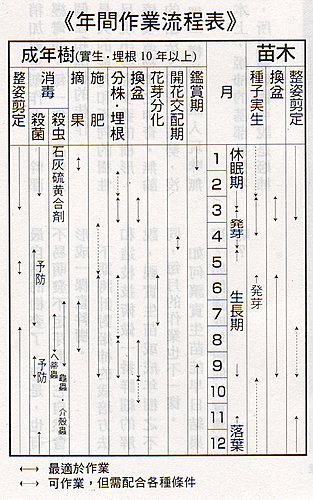 《年間作業流程表》
成年樹(實生·埋根10年以上)
苗木
整姿剪定
消毒
殺菌
殺虫
摘果
施肥
分株·埋根
換盆
花芽分化
開花交配期
鑑賞期
月
種子実生
換盆
整姿剪定
石灰硫黄合剤
予防
予防
蚜蟲
龜蟲·介殼蟲
1
2
3
4
5
6
7
8
9
10
11
12
休眠期
発芽
生長期
落葉
発芽
最適於作業
可作業，但需配合各種條件